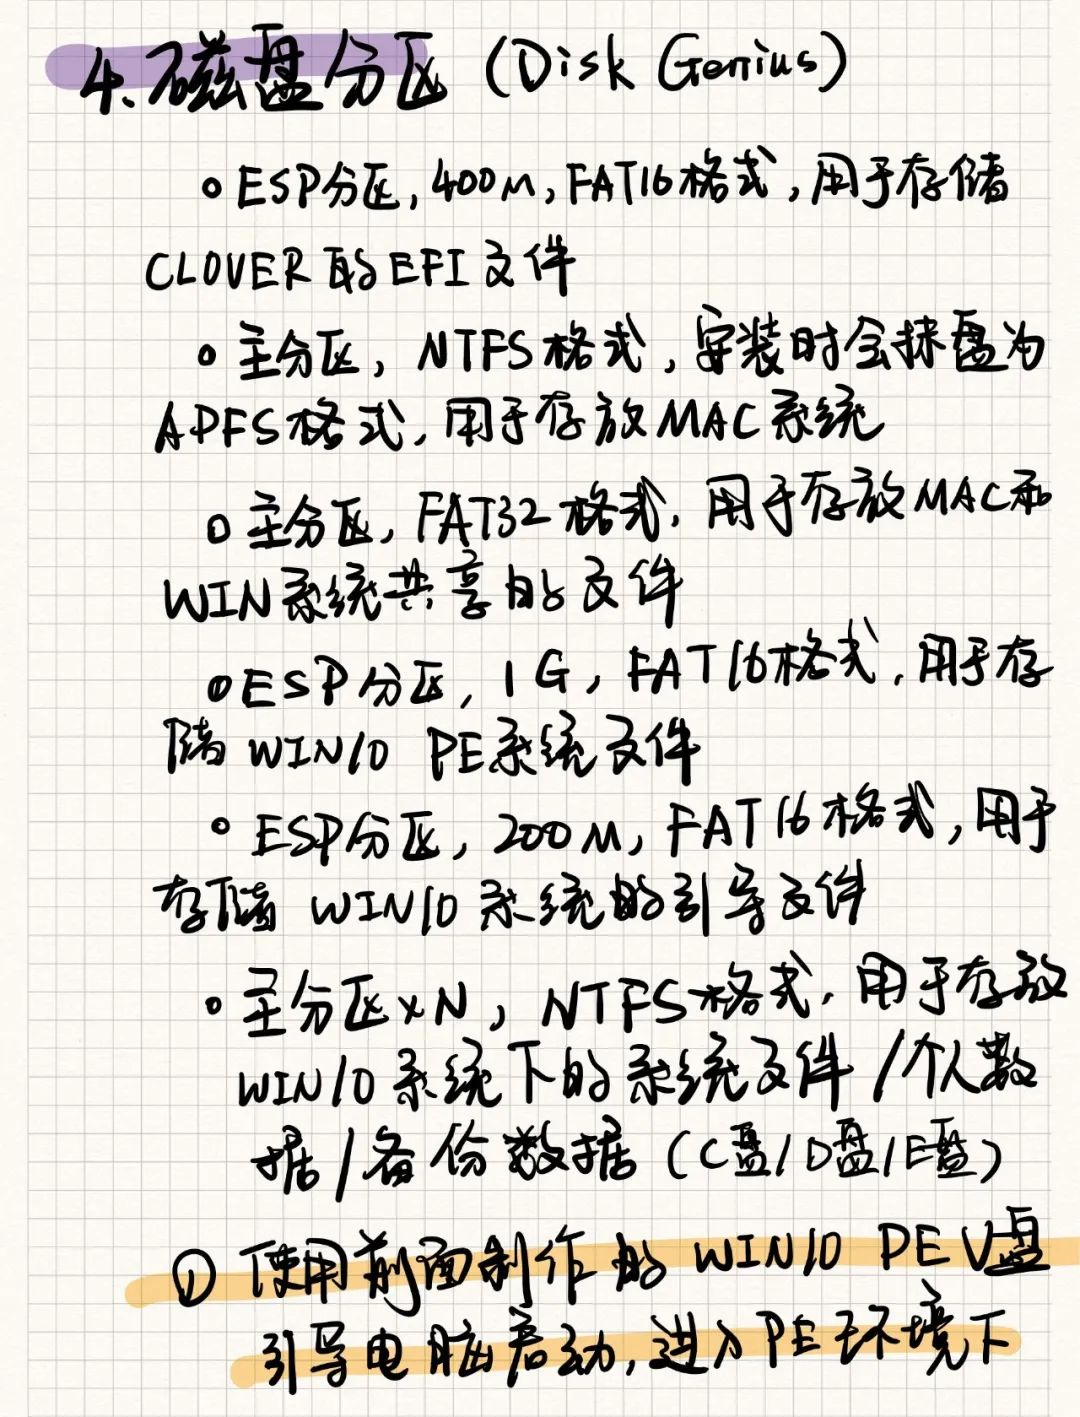 4.磁盘分区 (Disk Genius)
ESP分区,400M,FAT16格式,用于存储
CLOVER的EFI文件
主分区,NTFS格式,安装时会抹盘为
APFS格式,用于存放MAC系统
主分区,FAT32格式,用于存放MAC和
WIN系统共享的文件
ESP分区,1G,FAT16格式,用于存
储WIN10 PE系统文件
ESP分区,200M,FAT16格式,用于
存储 WIN10系统的引导文件
主分区xN,NTFS格式,用于存放
WIN10系统下的系统文件/个人数
据/备份数据(C盘/D盘/E盘)
① 使用前面制作的WIN10 PE U盘
引导电脑启动,进入PE环境下